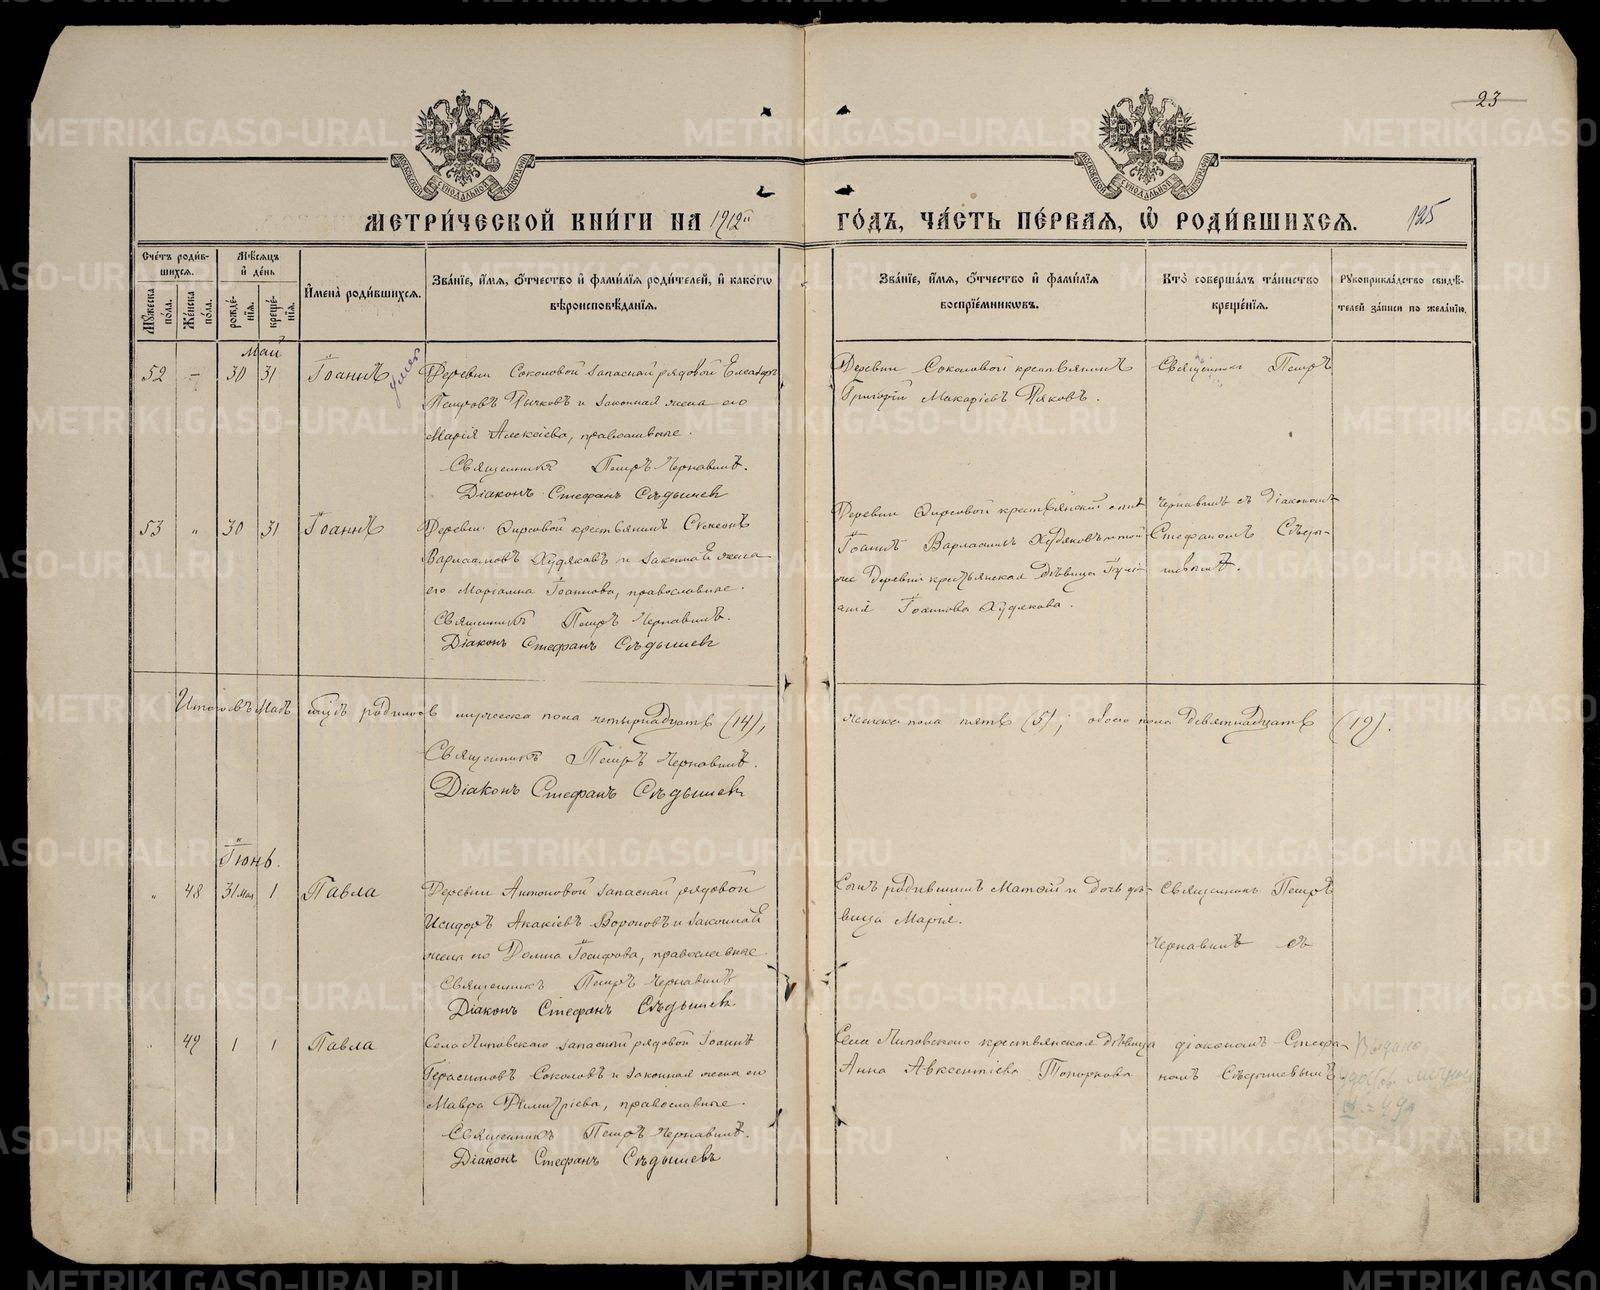 23
МЕТРИ́ЧЕСКОЙ КНИ́ГИ НА 1912й ГО́ДЪ, ЧА́СТЬ ПЕ́РВАЯ, Ѡ РОДИ́ВШИХСЯ. 125
Сче́тъ роди́вшихся.
Мѣ́сяцъ и де́нь
Му́жеска по́ла.
Же́нска по́ла.
рожде́нїя.
креще́нїя.
И́мена̀ роди́вшихся.
Зва́нїе, и́мя, ѻ́тчество и҆ фами́лїя роди́телей, и҆ како́гѡ
вѣроисповѣ́данїя.
Зва́нїе, и́мя, ѻ́тчество и҆ фами́лїя
воспрїе́мникѡвъ.
Кто̀ соверша́лъ та́инство
креще́нїя.
Рукоприкла́дство свидѣ́-
телей за́писи по жела́нїю.
Май
52 - 30 31 Іоаннъ
Деревни Соколовой запасный рядовой
Петровъ Рычковъ и законная жена его
Марія Алексіева, православные.
Священникъ Петръ Чернавинъ.
Діаконъ Стефанъ Сѣдышевъ
Деревни Соколовой крестьянинъ
Григорій Макаріевъ
Священникъ Петръ
53 " 30 31 Іоаннъ
Деревни крестьянинъ Симеонъ
Варлаамовъ Худяковъ и законная жена
его Маріамна Іоаннова, православные.
Священникъ Петръ Чернавинъ.
Діаконъ Стефанъ Сѣдышевъ
Деревни крестьянскій сынъ
Іоаннъ Варлаамовъ Худяковъ и той
же деревни крестьянская дѣвица
Іоаннова Худякова.
Чернавинъ съ діакономъ
Стефаномъ Сѣды-
шевымъ.
Итого въ Маѣ мц̃ѣ родилось мужеска пола четырнадцать (14), женска пола пять (5), обоего пола девятнадцать (19).
Священникъ Петръ Чернавинъ.
Діаконъ Стефанъ Сѣдышевъ
Іюнь.
" 48 31 мая 1 Павла
Деревни Антоновой запасный рядовой
Исидоръ Акакіевъ Вороновъ и законная
жена его Домна Іосифова, православные
Священникъ Петръ Чернавинъ
Діаконъ Стефанъ Сѣдышевъ
родившійся и дочь дѣ-
вица Марія.
Священникъ Петръ
Чернавинъ съ
49 1 1 Павла
Села Липовскаго запасный рядовой Іоаннъ
Герасимовъ Соколовъ и законная жена его
Мавра Димитріева, православные.
Священникъ Петръ Чернавинъ.
Діаконъ Стефанъ Сѣдышевъ
Села Липовскаго крестьянская дѣвица
Анна Авксентіева Топоркова
діакономъ Стефа-
номъ Сѣдышевымъ
Выдано
METRIKI.GASO-URAL.RU